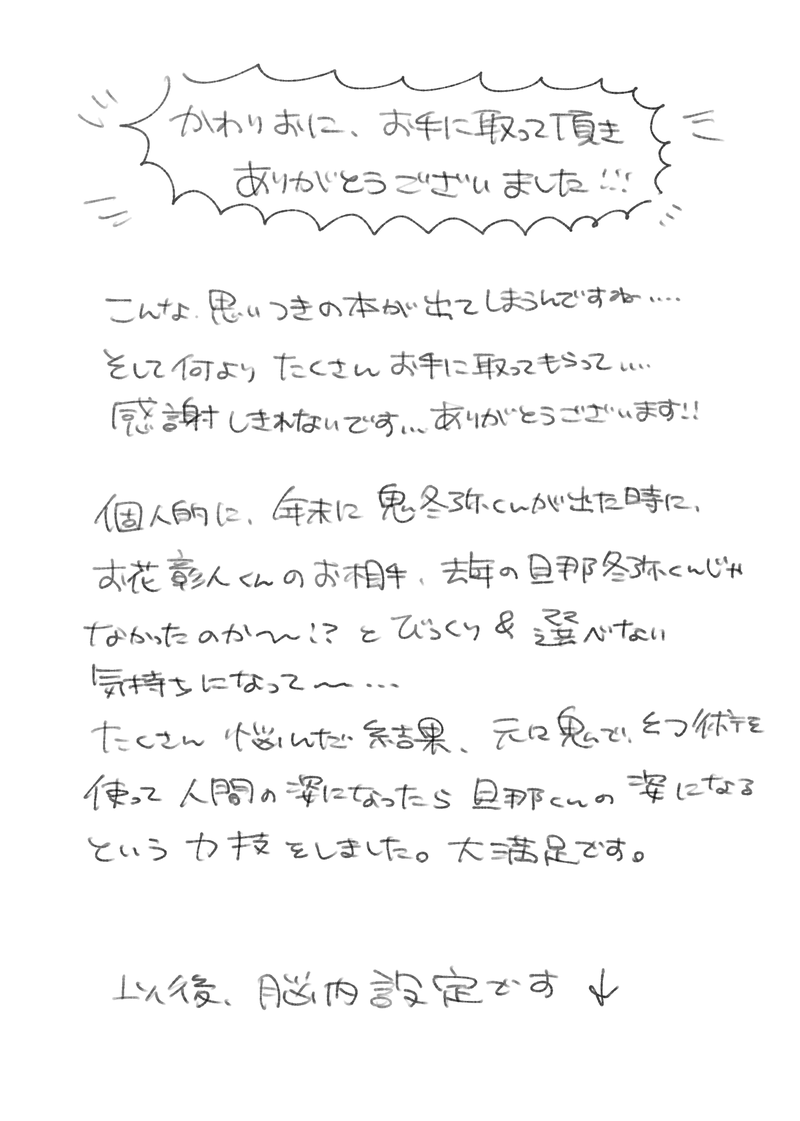 かわりおに、お手に取って頂き
ありがとうございました!!!
こんな思いつきの本が出てしまうんですね....
そして何より たくさん お手に取ってもらって....
感謝しきれないです...ありがとうございます!!
個人的に、年末に 鬼冬弥くんが出た時に、
お花彰人くんのお相手、去年の旦那冬弥くんじゃ
なかったのか〜〜!? と びっくり & 選べない
気持ちになって〜〜...
たくさん 悩んだ結果、元は鬼で、とつ術を
使って 人間の姿になったら 旦那くんの 姿になる
という 力技 をしました。大満足です。
以後、脳内設定です ↓